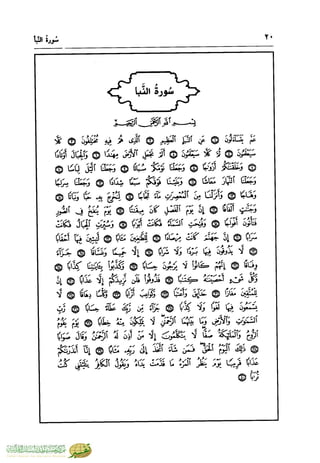 ٢٠
سُورَةُ النَّبَأ
سُورَةُ النَّبَأ
بِسْمِ اللَّهِ الرَّحْمَٰنِ الرَّحِيمِ
عَمَّ يَتَسَآءَلُونَ ۝ عَنِ ٱلنَّبَإِ ٱلْعَظِيمِ ۝ ٱلَّذِى هُمْ فِيهِ مُخْتَلِفُونَ ۝ كَلَّا
سَيَعْلَمُونَ ۝ ثُمَّ كَلَّا سَيَعْلَمُونَ ۝ أَلَمْ نَجْعَلِ ٱلْأَرْضَ مِهَٰدًا ۝ وَٱلْجِبَالَ أَوْتَادًا
۝ وَخَلَقْنَٰكُمْ أَزْوَٰجًا ۝ وَجَعَلْنَا نَوْمَكُمْ سُبَاتًا ۝ وَجَعَلْنَا ٱلَّيْلَ لِبَاسًا ۝
وَجَعَلْنَا ٱلنَّهَارَ مَعَاشًا ۝ وَبَنَيْنَا فَوْقَكُمْ سَبْعًا شِدَادًا ۝ وَجَعَلْنَا سِرَاجًا
وَهَّاجًا ۝ وَأَنزَلْنَا مِنَ ٱلْمُعْصِرَٰتِ مَآءً ثَجَّاجًا ۝ لِّنُخْرِجَ بِهِۦ حَبًّا وَنَبَاتًا ۝
وَجَنَّٰتٍ أَلْفَافًا ۝ إِنَّ يَوْمَ ٱلْفَصْلِ كَانَ مِيقَٰتًا ۝ يَوْمَ يُنفَخُ فِى ٱلصُّورِ
فَتَأْتُونَ أَفْوَاجًا ۝ وَفُتِحَتِ ٱلسَّمَآءُ فَكَانَتْ أَبْوَٰبًا ۝ وَسُيِّرَتِ ٱلْجِبَالُ فَكَانَتْ
سَرَابًا ۝ إِنَّ جَهَنَّمَ كَانَتْ مِرْصَادًا ۝ لِّلطَّٰغِينَ مَـَٔابًا ۝ لَّٰبِثِينَ فِيهَآ أَحْقَابًا
۝ لَّا يَذُوقُونَ فِيهَا بَرْدًا وَلَا شَرَابًا ۝ إِلَّا حَمِيمًا وَغَسَّاقًا ۝ جَزَآءً
وِفَاقًا ۝ إِنَّهُمْ كَانُوا۟ لَا يَرْجُونَ حِسَابًا ۝ وَكَذَّبُوا۟ بِـَٔايَٰتِنَا كِذَّابًا ۝
وَكُلَّ شَىْءٍ أَحْصَيْنَٰهُ كِتَٰبًا ۝ فَذُوقُوا۟ فَلَن نَّزِيدَكُمْ إِلَّا عَذَابًا ۝ إِنَّ
لِلْمُتَّقِينَ مَفَازًا ۝ حَدَآئِقَ وَأَعْنَٰبًا ۝ وَكَوَاعِبَ أَتْرَابًا ۝ وَكَأْسًا دِهَاقًا ۝ لَّا
يَسْمَعُونَ فِيهَا لَغْوًا وَلَا كِذَّٰبًا ۝ جَزَآءً مِّن رَّبِّكَ عَطَآءً حِسَابًا ۝ رَّبِّ
ٱلسَّمَٰوَٰتِ وَٱلْأَرْضِ وَمَا بَيْنَهُمَا ٱلرَّحْمَٰنِ لَا يَمْلِكُونَ مِنْهُ خِطَابًا ۝ يَوْمَ يَقُومُ
ٱلرُّوحُ وَٱلْمَلَٰٓئِكَةُ صَفًّا لَّا يَتَكَلَّمُونَ إِلَّا مَنْ أَذِنَ لَهُ ٱلرَّحْمَٰنُ وَقَالَ صَوَابًا
۝ ذَٰلِكَ ٱلْيَوْمُ ٱلْحَقُّ فَمَن شَآءَ ٱتَّخَذَ إِلَىٰ رَبِّهِۦ مَـَٔابًا ۝ إِنَّآ أَنذَرْنَٰكُمْ
عَذَابًا قَرِيبًا يَوْمَ يَنظُرُ ٱلْمَرْءُ مَا قَدَّمَتْ يَدَاهُ وَيَقُولُ ٱلْكَافِرُ يَٰلَيْتَنِى كُنتُ
تُرَٰبًا ۝